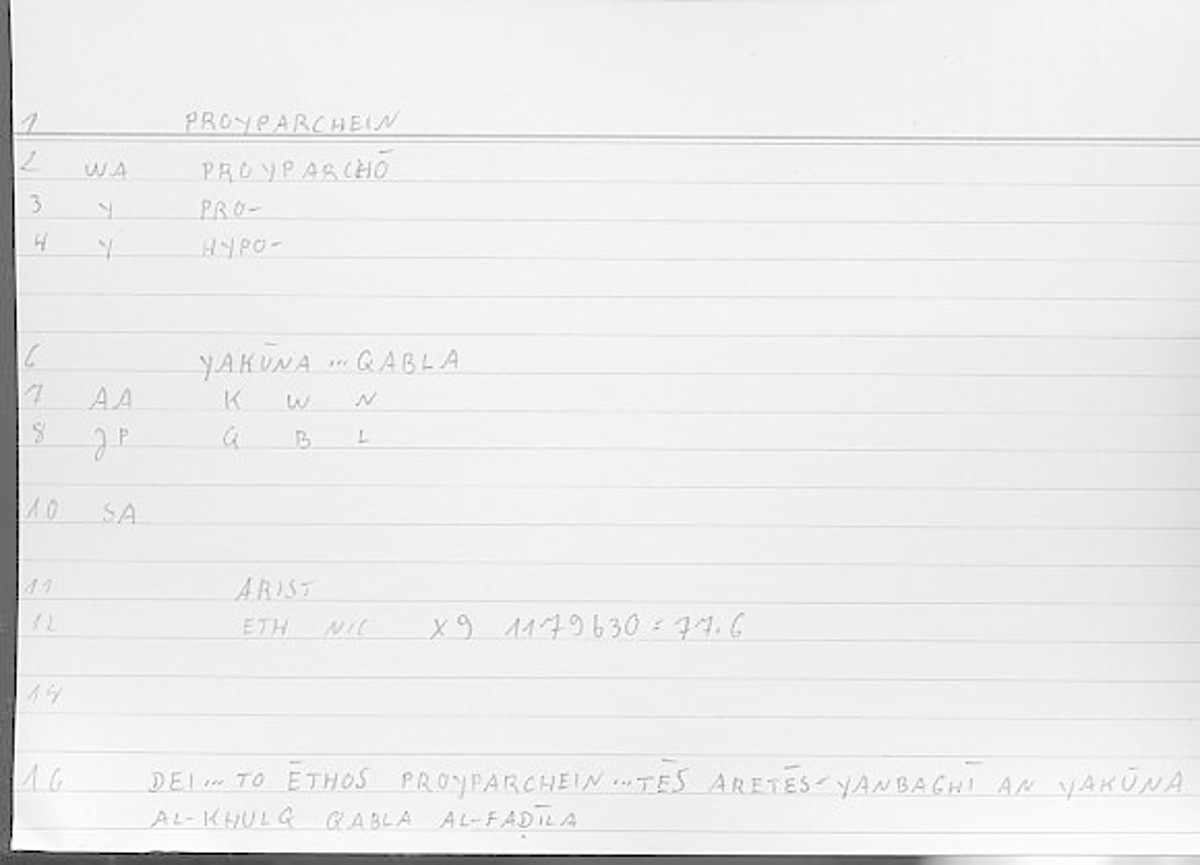 1 PROYPARCHEIN
2 WA PROYPARCHŌ
3 Y PRO-
4 Y HYPO-
6 YAKŪNA ... QABLA
7 AA K W N
8 JP Q B L
10 SA
11 ARIST
12 ETH NIC X9 1179b30 = 77.6
14
16 DEI ... TO ĒTHOS PROYPARCHEIN ... TĒS ARETĒS - YANBAGHĪ AN YAKŪNA
AL-KHULQ QABLA AL-FAḌĪLA